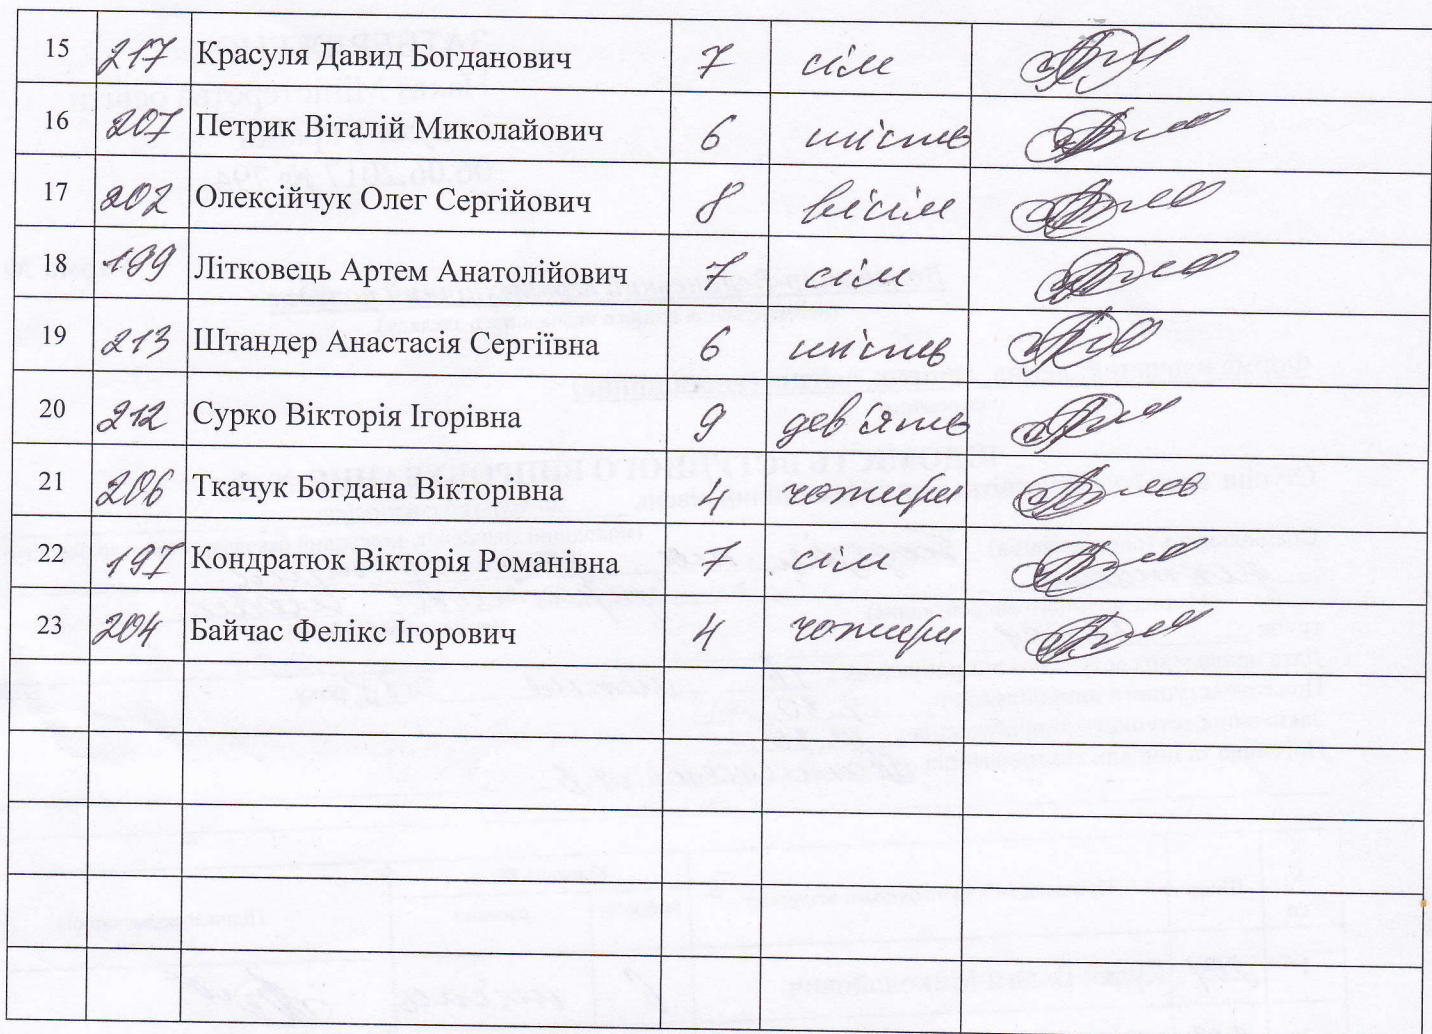 15 217 Красуля Давид Богданович 7 сім
16 207 Петрик Віталій Миколайович 6 шість
17 202 Олексійчук Олег Сергійович 8 вісім
18 199 Літковець Артем Анатолійович 7 сім
19 213 Штандер Анастасія Сергіївна 6 шість
20 212 Сурко Вікторія Ігорівна 9 дев'ять
21 206 Ткачук Богдана Вікторівна 4 чотири
22 197 Кондратюк Вікторія Романівна 7 сім
23 204 Байчас Фелікс Ігорович 4 чотири